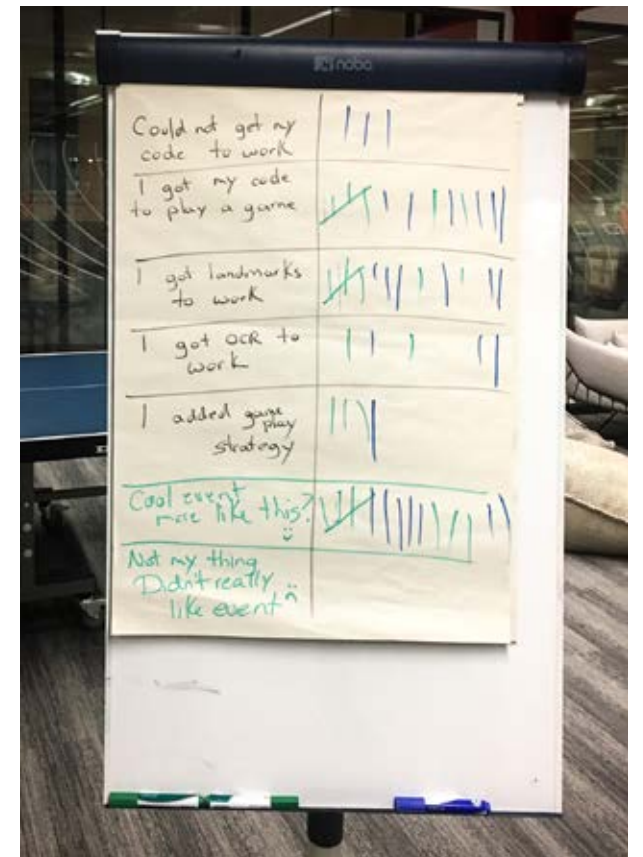 nobo
Could not get my
code to work
I got my code
to play a game
I got landmarks
to work
I got OCR to
work
I added game
play
strategy
Cool event
more like this?
Not my thing
Didn't really
like event